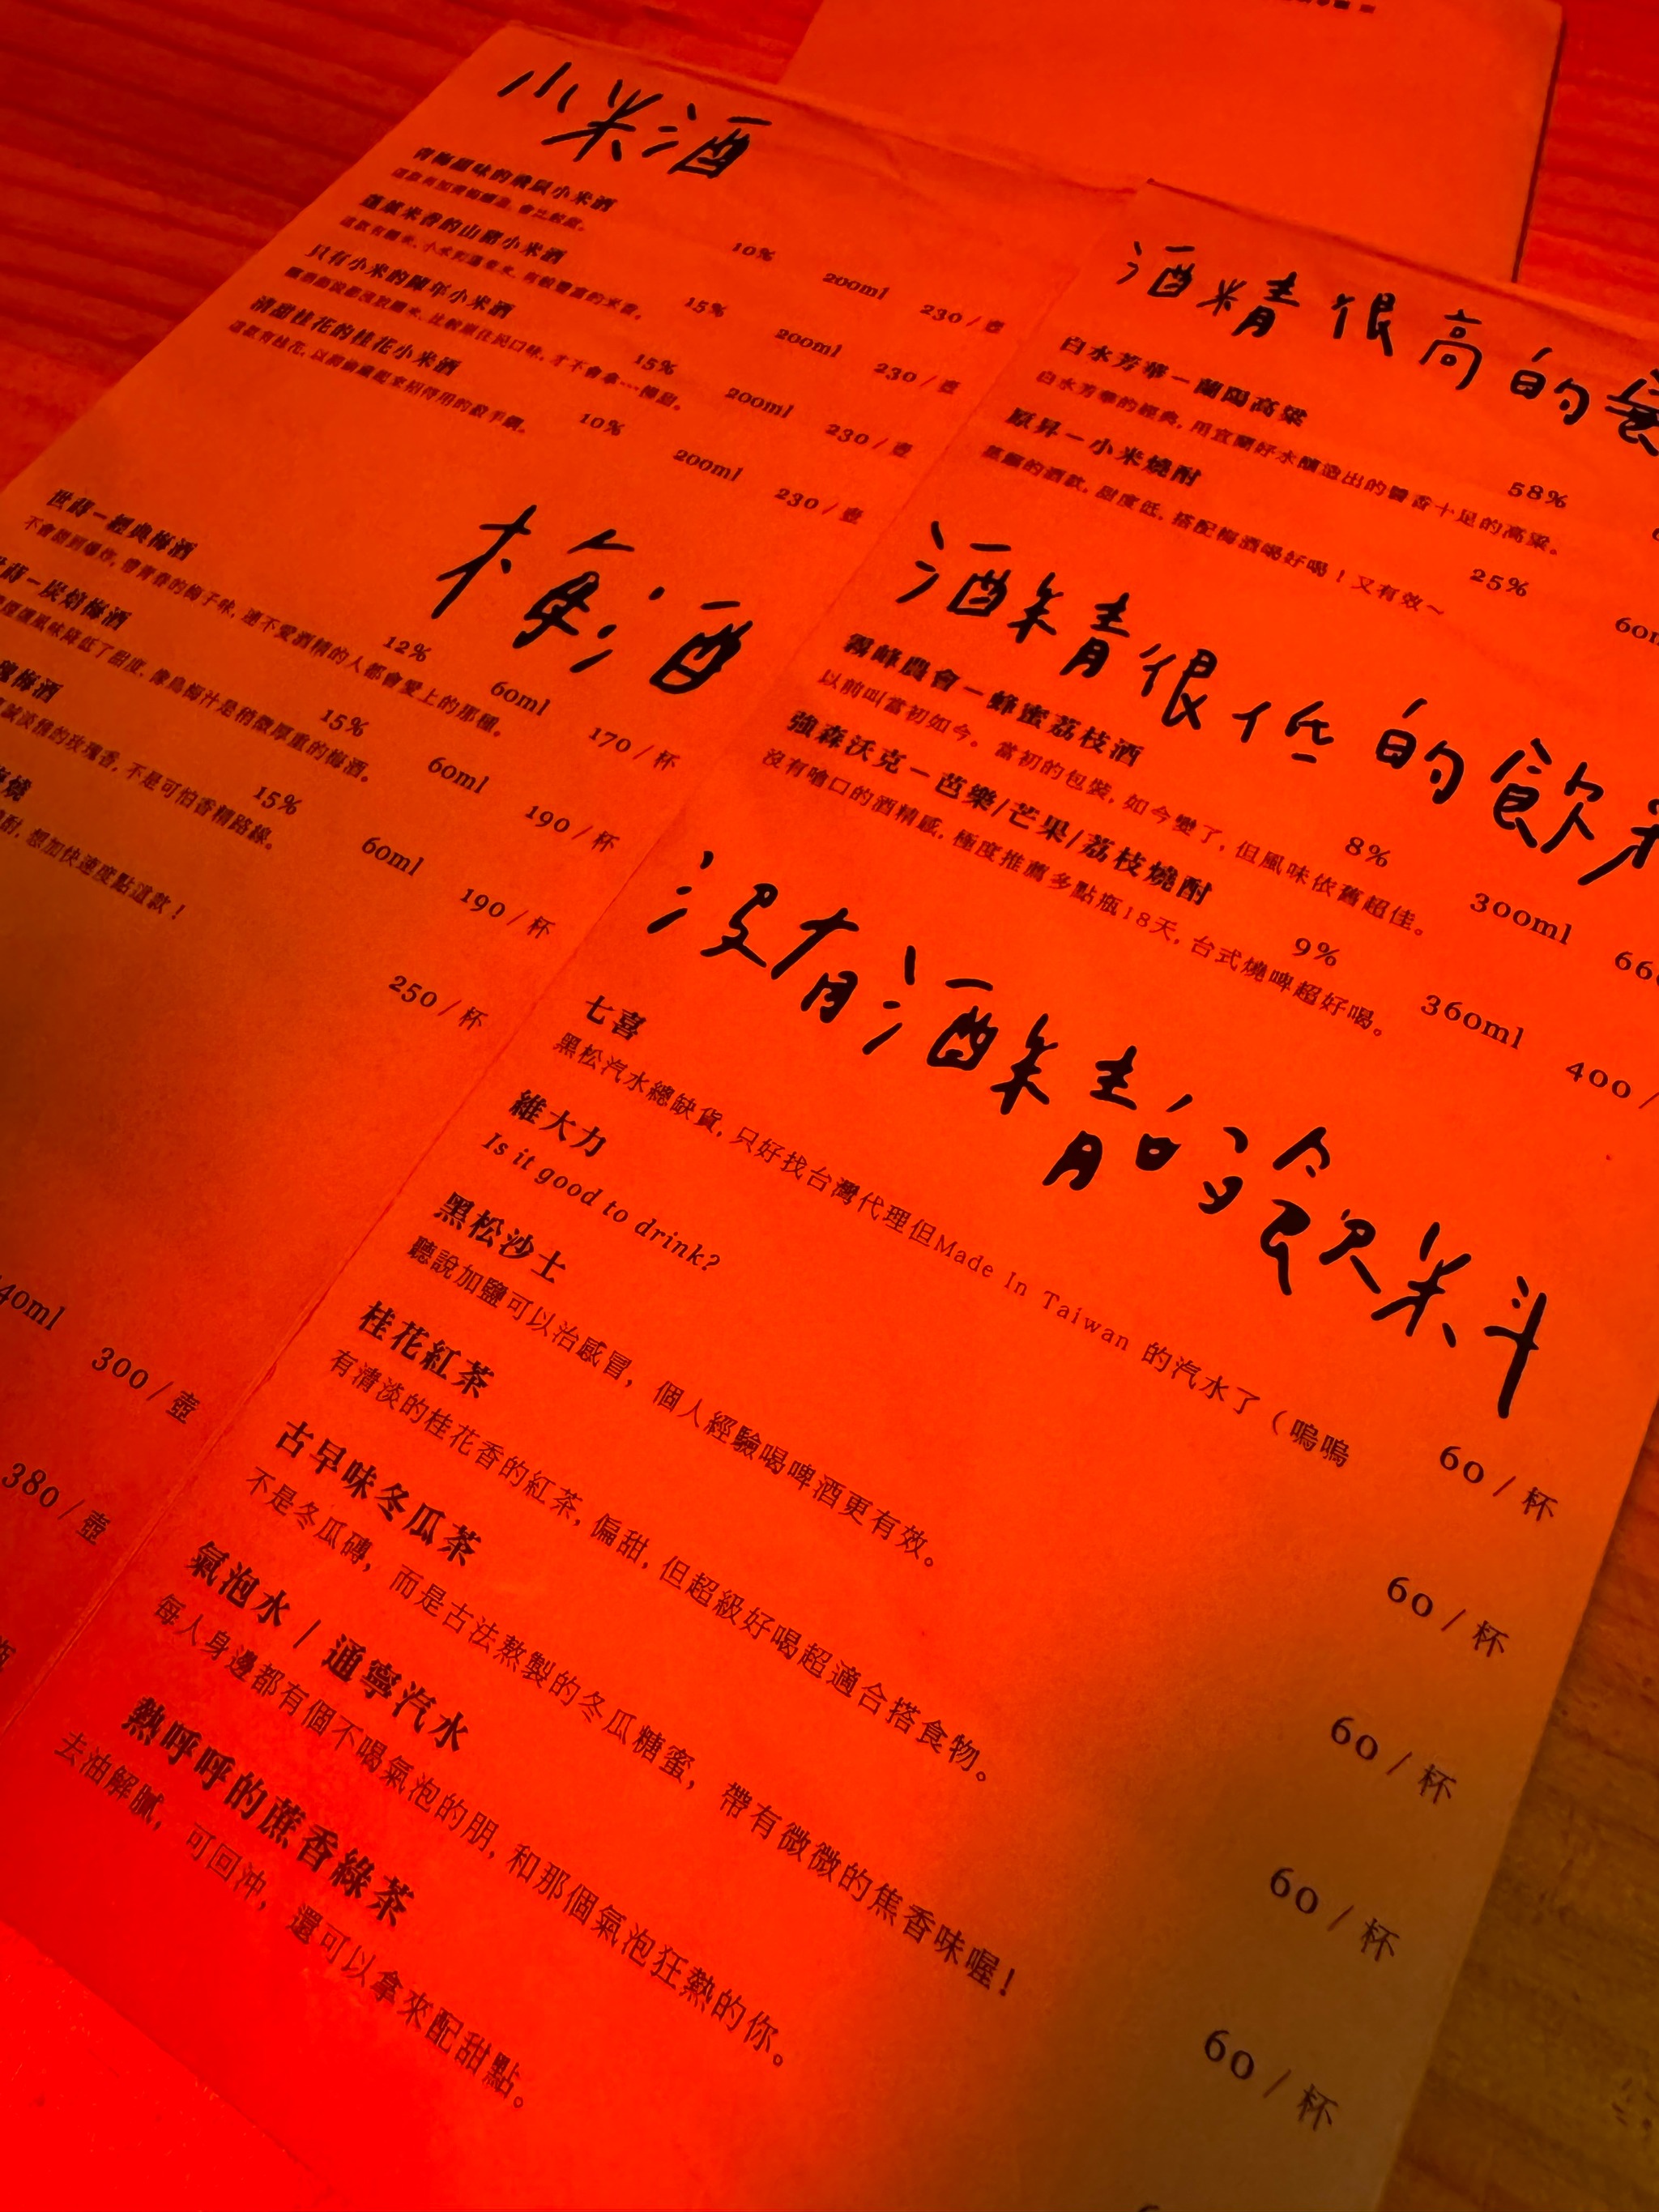 小米酒
青梅風味的飛鼠小米酒 10% 200ml 230 / 壺
蓬萊米香的山豬小米酒 15% 200ml 230 / 壺
只有小米的陳年小米酒 15% 200ml 230 / 壺
清甜桂花的桂花小米酒 10% 200ml 230 / 壺
梅酒
世蒔－經典梅酒 12% 60ml 170 / 杯
不會甜到爆炸, 帶青春的梅子味, 連不愛酒精的人都會愛上的那種。
蒔－炭焙梅酒 15% 60ml 190 / 杯
風味降低了甜度, 像烏梅汁是稍微厚重的梅酒。
梅酒 15% 60ml 190 / 杯
淡雅的玫瑰香, 不是可怕香精路線。
250 / 杯
想加快速度點這款！
40ml 300 / 壺
380 / 壺
瓶
酒精很高的
白水芳華－蘭陽高粱 58%
白水芳華的經典, 用宜蘭好水釀造出的醬香十足的高粱。
原昇－小米燒酎 25%
蒸餾的酒款, 甜度低, 搭配梅酒喝好喝！又有效～
酒精很低的飲料
霧峰農會－蜂蜜荔枝酒 8% 300ml
以前叫當初如今。當初的包裝, 如今變了, 但風味依舊超佳。
強森沃克－芭樂/芒果/荔枝燒酎 9% 360ml 400 /
沒有嗆口的酒精感, 極度推薦多點瓶18天, 台式燒啤超好喝。
沒有酒精的飲料
七喜 60 / 杯
黑松汽水總缺貨, 只好找台灣代理但Made In Taiwan 的汽水了（嗚嗚
維大力 60 / 杯
Is it good to drink?
黑松沙士 60 / 杯
聽說加鹽可以治感冒, 個人經驗喝啤酒更有效。
桂花紅茶 60 / 杯
有清淡的桂花香的紅茶, 偏甜, 但超級好喝超適合搭食物。
古早味冬瓜茶 60 / 杯
不是冬瓜磚, 而是古法熬製的冬瓜糖蜜, 帶有微微的焦香味喔！
氣泡水 / 通寧汽水
每人身邊都有個不喝氣泡的朋, 和那個氣泡狂熱的你。
熱呼呼的蔗香綠茶
去油解膩, 可回沖, 還可以拿來配甜點。